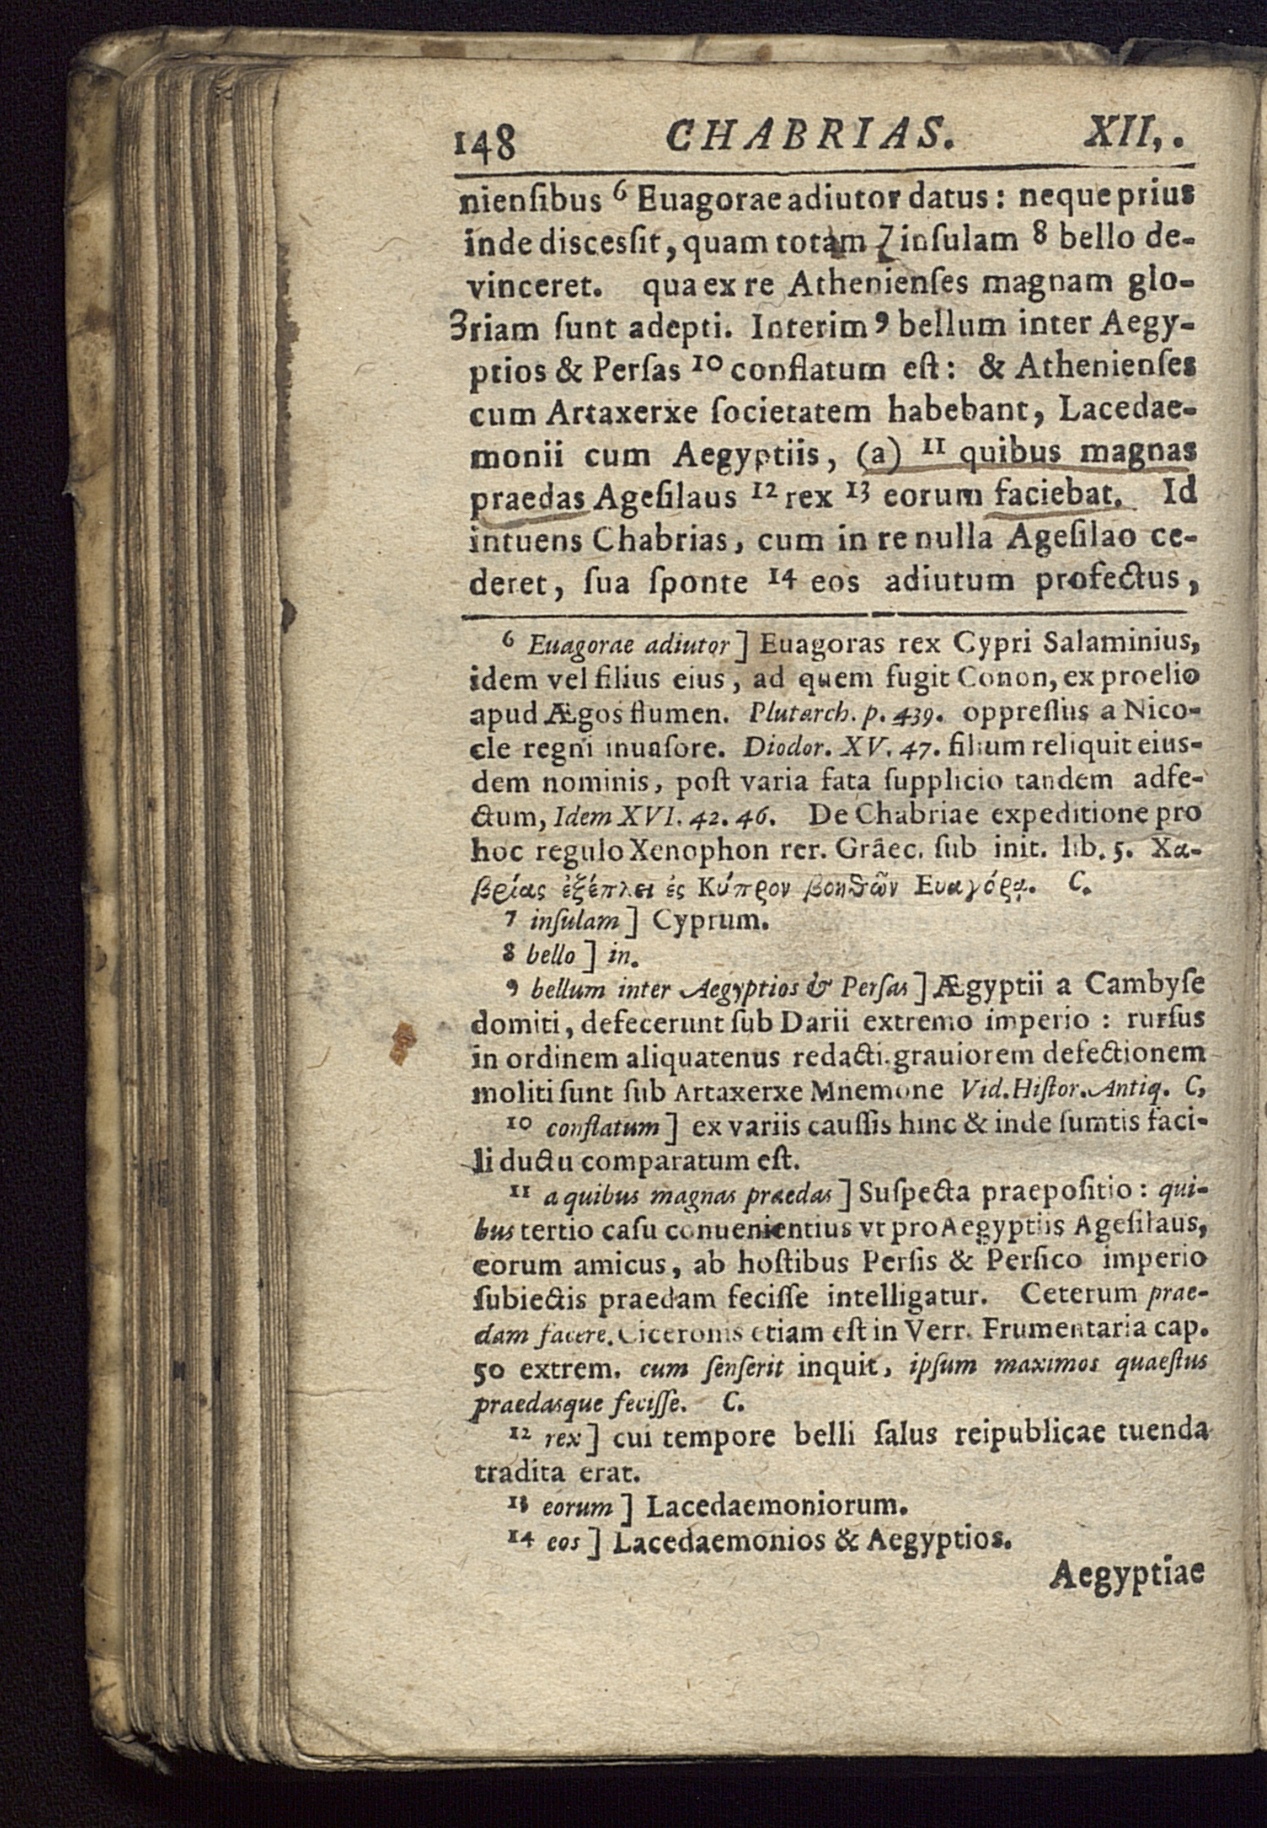 148 CHABRIAS. XII,.
nienſibus 6 Euagorae adiutor datus: neque prius
inde discessit, quam totam 7 inſulam 8 bello de-
vinceret. qua ex re Athenienſes magnam glo-
3riam ſunt adepti. Interim 9 bellum inter Aegy-
ptios & Perſas 10 conflatum eſt: & Athenienſes
cum Artaxerxe ſocietatem habebant, Lacedae-
monii cum Aegyptiis, (a) 11 quibus magnas
praedas Ageſilaus 12 rex 13 eorum faciebat. Id
intuens Chabrias, cum in re nulla Ageſilao ce-
deret, ſua ſponte 14 eos adiutum profectus,
6 Euagorae adiutor] Euagoras rex Cypri Salaminius,
idem vel filius eius, ad quem fugit Conon, ex proelio
apud Ægos flumen. Plutarch. p. 439. oppreſſus a Nico-
cle regni inuaſore. Diodor. XV. 47. filium reliquit eius-
dem nominis, poſt varia fata ſupplicio tandem adfe-
ctum, Idem XVI. 42. 46. De Chabriae expeditione pro
hoc regulo Xenophon rer. Graec. ſub init. lib. 5. Χα-
βρίας ἐξέπλει ἐς Κύπρον βοηθῶν Ευαγόρᾳ. C.
7 inſulam] Cyprum.
8 bello] in.
9 bellum inter Aegyptios & Perſas] Ægyptii a Cambyſe
domiti, defecerunt ſub Darii extremo imperio: rurſus
in ordinem aliquatenus redacti. grauiorem defectionem
moliti ſunt ſub Artaxerxe Mnemone Vid. Hiſtor. Antiq. C,
10 conflatum] ex variis cauſſis hinc & inde ſumtis faci-
li ductu comparatum eſt.
11 a quibus magnas praedas] Suſpecta praepoſitio: qui-
bus tertio caſu conuenientius vt pro Aegyptiis Ageſilaus,
eorum amicus, ab hoſtibus Perſis & Perſico imperio
ſubiectis praedam feciſſe intelligatur. Ceterum prae-
dam facere. Ciceronis etiam eſt in Verr. Frumentaria cap.
50 extrem. cum ſenſerit inquit, ipſum maximos quaeſtus
praedasque feciſſe. C.
12 rex] cui tempore belli ſalus reipublicae tuenda
tradita erat.
13 eorum] Lacedaemoniorum.
14 eos] Lacedaemonios & Aegyptios.
Aegyptiae